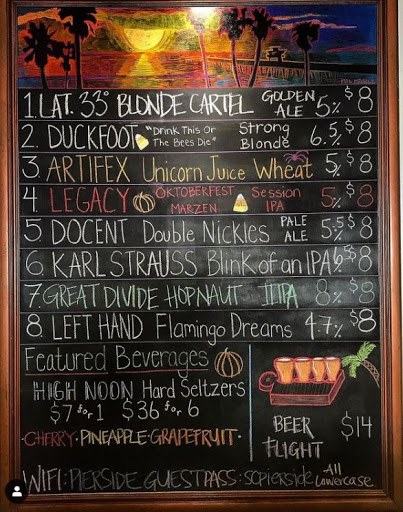 1. LAT. 33° BLONDE CARTEL GOLDEN ALE 5% $8
2. DUCKFOOT "Drink This Or The Bees Die" Strong Blonde 6.5% $8
3. ARTIFEX Unicorn Juice Wheat 5% $8
4 LEGACY OKTOBERFEST MARZEN Session IPA 5% $8
5 DOCENT Double Nickles PALE ALE 5.5% $8
6 KARL STRAUSS Blink of an IPA 6.5% $8
7. GREAT DIVIDE HOPNAUT IIIPA 8% $8
8. LEFT HAND Flamingo Dreams 4.7% $8
Featured Beverages
HIGH NOON Hard Seltzers
$7 for 1 $36 for 6
·CHERRY·PINEAPPLE·GRAPEFRUIT·
BEER FLIGHT $14
WIFI: PIERSIDE GUEST PASS: sopierside All Lowercase